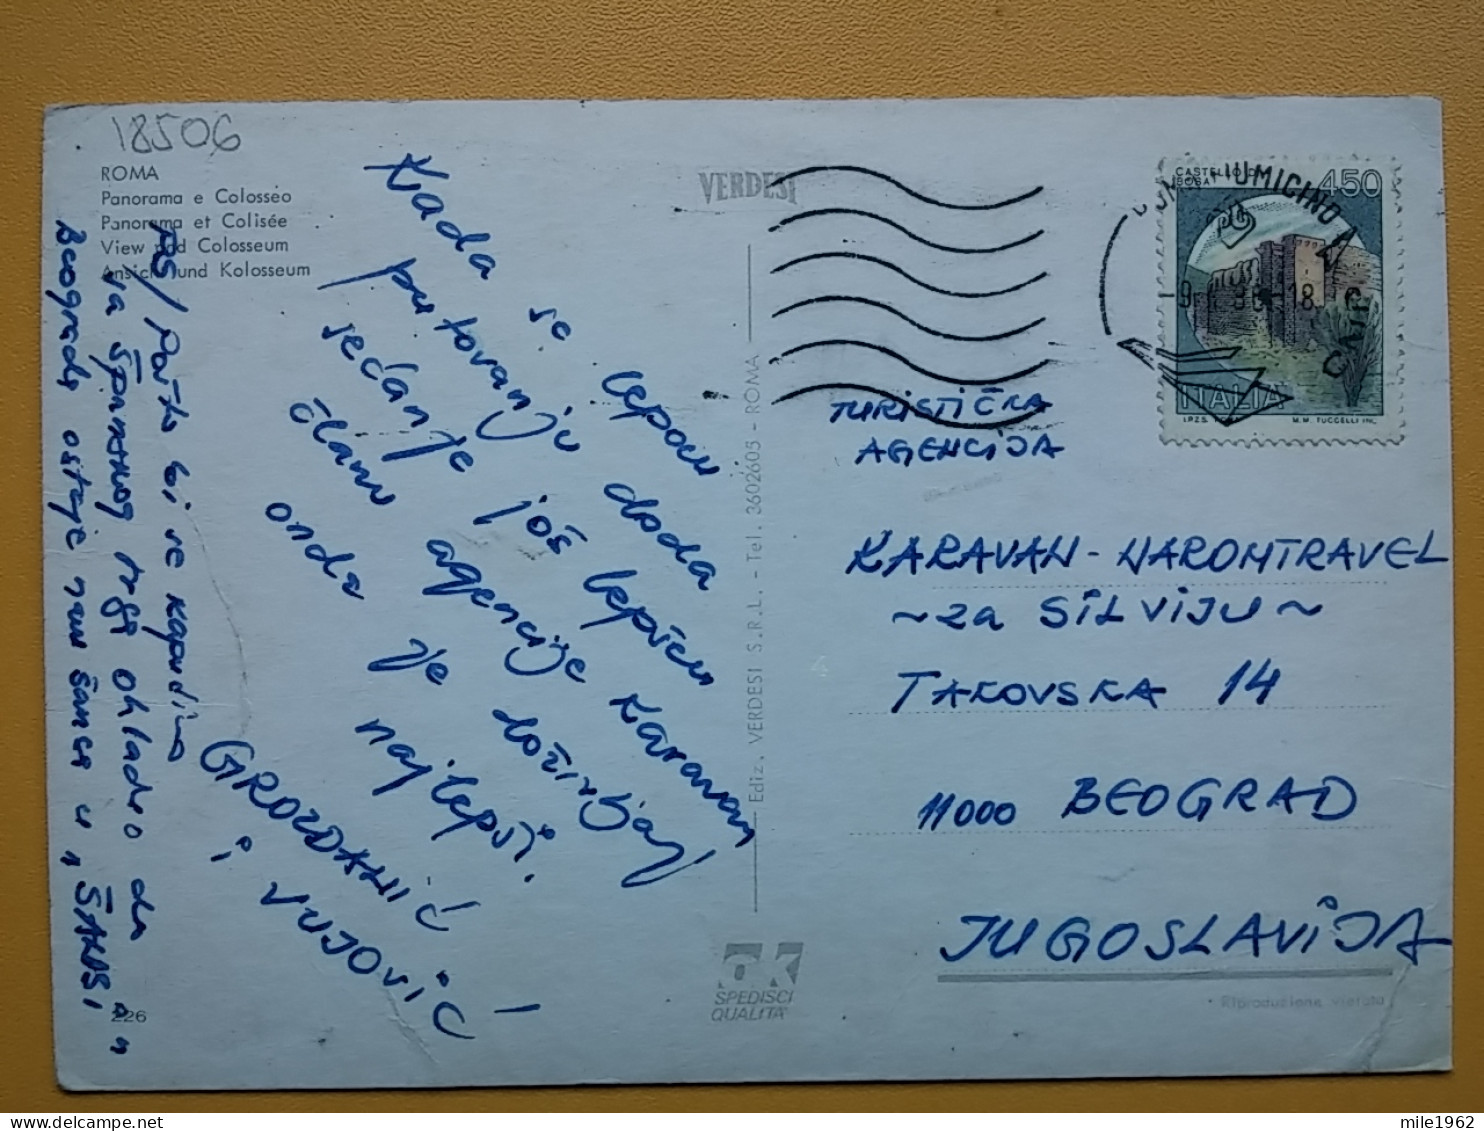 18506
ROMA
Panorama e Colosseo
Panorama et Colisée
View and Colosseum
Ansicht und Kolosseum
VERDESI
Kada se lepom
putovanju doda
sećanje još lepšem
članu agencije Karavan
onda je doživljaj
najlepši.
GROZDANIĆ
i VUJOVIĆ!
PS/ Pošto bi se
sa Španskog trga ohladio da
Beograda ostaje nam šansa u
226
Ediz. VERDESI S.R.L. - Tel. 3602603 - ROMA
SPEDISCI
QUALITA'
CASTELLO DI
BOSA
450
ITALIA
I.P.Z.S.
M.M. TUCCELLI INC.
ROMA FIUMICINO
TURISTIČKA
AGENCIJA
KARAVAN-NAROMTRAVEL
~za SILVIJU~
TAKOVSKA 14
11000 BEOGRAD
JUGOSLAVIJA
Riproduzione vietata
mile1962